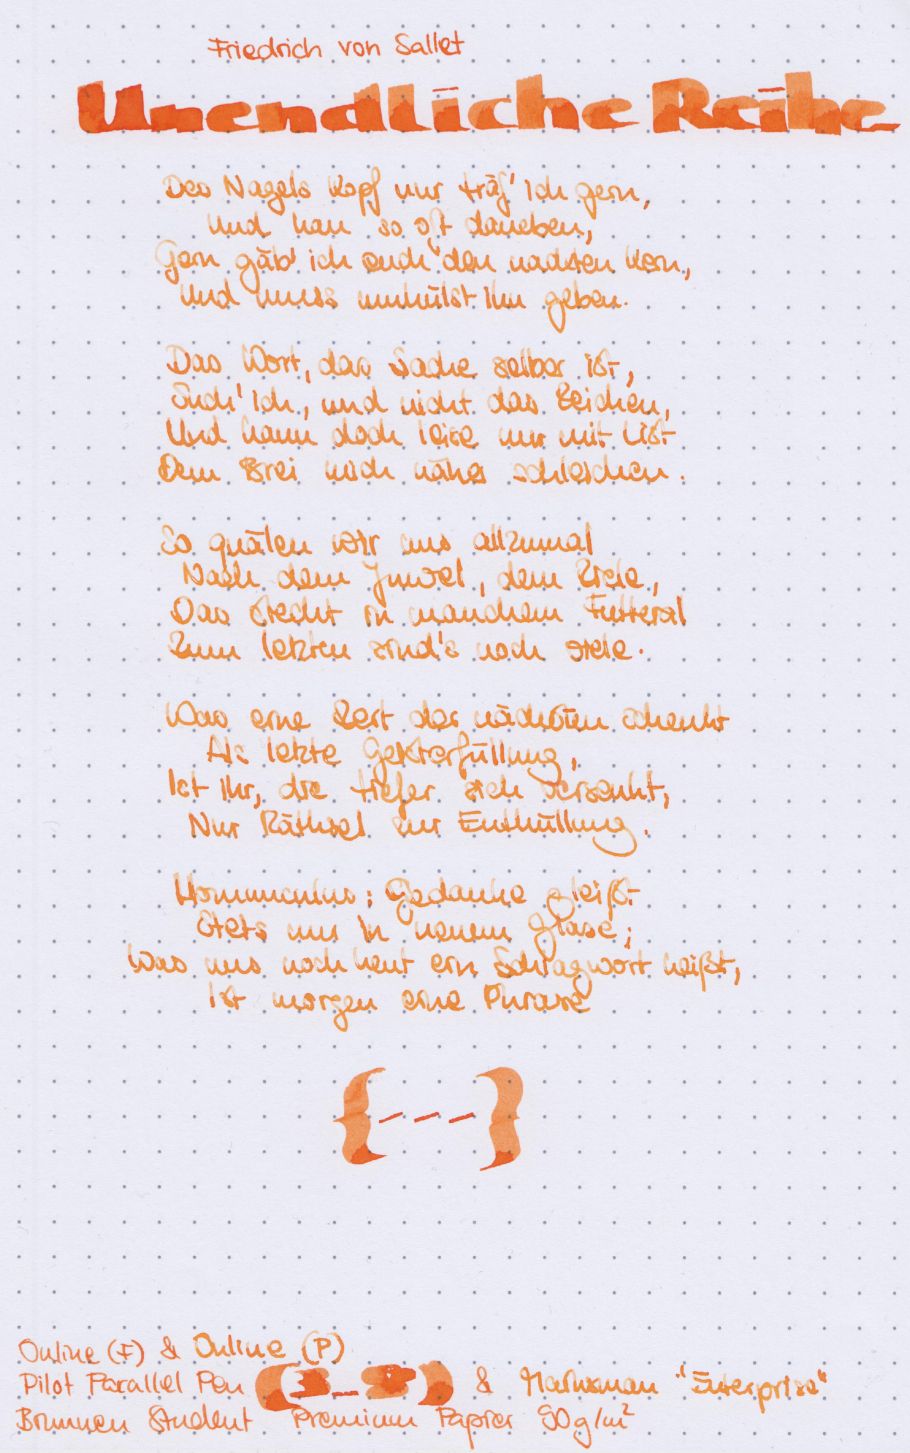 Friedrich von Sallet
Unendliche Reihe
Des Nagels Kopf nur träf' ich gern,
Und hau so oft daneben,
Gern gäb' ich euch den nackten Kern,
Und muss umhülst ihn geben.
Das Wort, das Sache selber ist,
Such' ich, und nicht das Zeichen,
Und kann doch leise nur mit List
Dem Brei noch näher schleichen.
So quälen wir uns allzumal
Nach dem Juwel, dem Ziele,
Das steckt in manchem Futteral
Zum letzten sind's noch viele.
Was eine Zeit der nächsten schenkt
Als letzte Geisterfüllung,
Ist ihr, die tiefer sich versenkt,
Nur Räthsel zur Enthüllung.
Homunculus: Gedanke gleißt
Stets nur in neuem Glase;
Was uns noch heut ein Schlagwort heißt,
Ist morgen eine Phrase
{---}
Online (F) & Online (P)
Pilot Parallel Pen & Marksman "Enterprise"
Brunnen Student Premium Papier 90g/m²